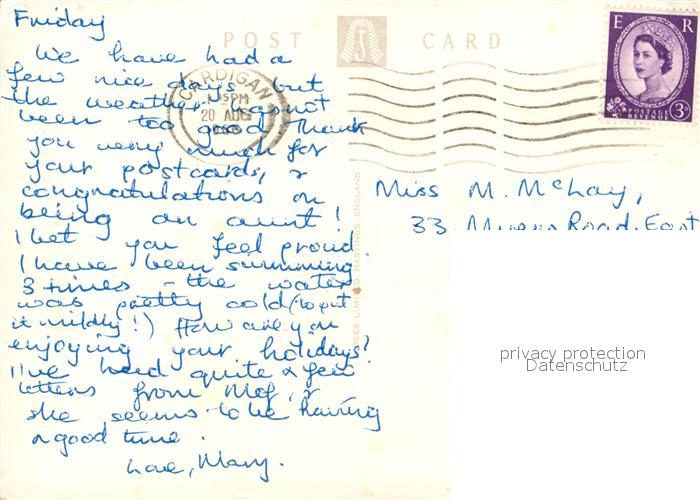 Friday
We have had a
few nice days but
the weather has not
been too good. Thank
you very much for
your postcards, &
congratulations on
being an aunt!
I bet you feel proud.
I have been swimming
3 times - the water
was pretty cold (to put
it mildly!) How are you
enjoying your holidays?
I've had quite a few
letters from Meg, &
she seems to be having
a good time.
Love, Mary.
POST CARD
CARDIGAN
PM
20 AUG
E R
POSTAGE
REVENUE
3D
LIMITED, HASTINGS, ENGLAND
Miss M. McLay,
33, Road East
privacy protection
Datenschutz